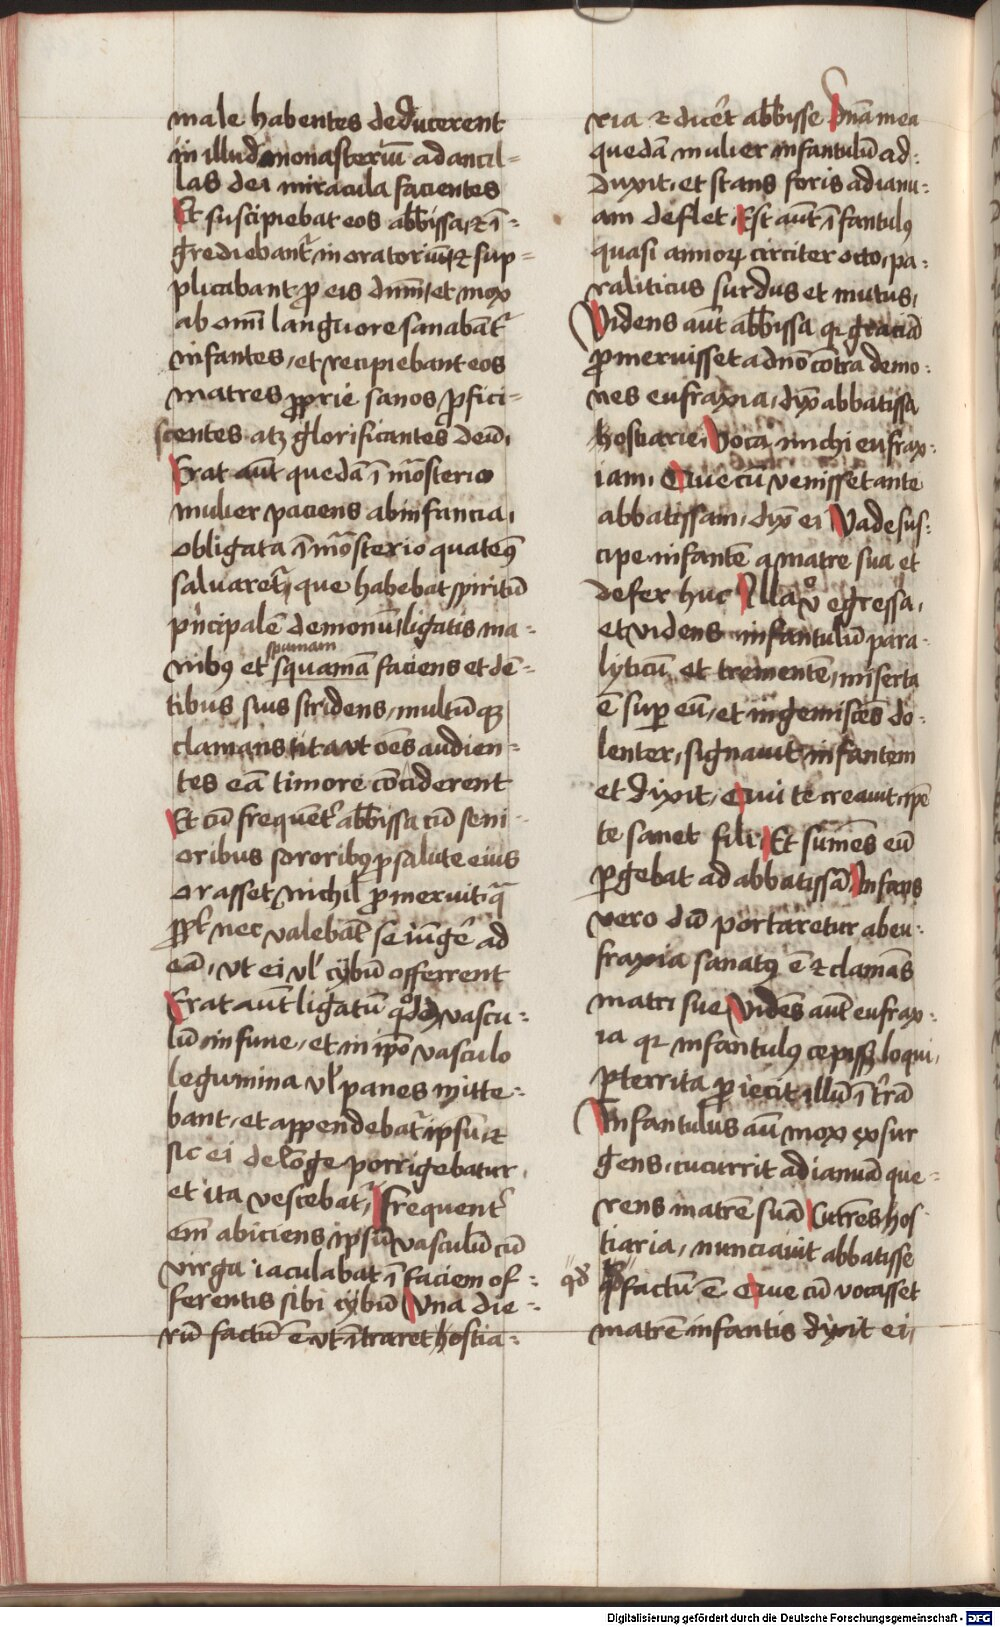 male habentes deducerent
in illud monasteriū ad ancil-
las dei miracula facientes
Et suscipiebat eos abb̄issa, ⁊ ī-
grediebant᷑ in oratoriū ⁊ sup-
plicabant p eis dnm̄, et mox
ab om̄i languore sanabāt᷑
infantes, et recipiebant eos
matres pprie sanos pfici-
scentes atꝫ glorificantes deū,
Erat aūt quedā ī mōsterio
mulier paciens ab infancia,
obligata ī mōsterio quaten9
saluaret᷑, que habebat spiritū
pͥncipalē demonū, ligatis ma-
nib9 et squamā faciens et dē-
spumam
tibus suis stridens, multūqꝫ
clamans ita vt oēs audien-
tes eā timore cōciderent
Et cū frequent᷑ abb̄issa cū seni-
oribus sororib9 p salute eius
orasset, nichil pmeruit qᷓ
ppt᷑ nec valebāt se iūge᷑ ad
eā, vt ei vl᷑ cybū offerrent
Erat aūt ligatū qͦddā vascu-
lū in fune, et in ip̄o vasculo
legumina vl᷑ panes mitte-
bant, et appendebat᷑ ipsū ⁊
sic ei de lōge porrigebatur,
et ita vescebat᷑, Frequent᷑
em̄ abiciens ipsū vasculū cū
virga iaculabat ī faciem of-
ferentis sibi cybū Vna die-
rū factū ē vt ītraret hostia-
ria ⁊ dice᷑t abb̄isse Dn̄a mea
quedā mulier infantulū ad-
duxit, et stans foris ad ianu-
am deflet, Est aūt ī fantul9
quasi annoꝝ circiter octo, pa-
raliticus surdus et mutus,
Videns aūt abb̄issa qꝛ graciā
pmeruisset a dn̄o cōtra demo-
nes eufraxia, dix̄ abbatissa
hostiarie, Voca michi eufrax-
iam, Que cū venisset ante
abbatissam, dix̄ ei Vade sus-
cipe infantē a matre sua et
defer huc Illa vͦ egressa,
et videns infantulū para-
lyticū et trementē, miserta
ē sup eū, et ingemiscēs do-
lenter, signauit infantem
et dixit, Qui te creauit, ip̄e
te sanet fili, Et sumēs eū
pgebat ad abbatissā, Infans
vero dū portaretur ab eu-
fraxia sanat9 ē ⁊ clamās
matri sue, Vidēs aūt eufrax-
ia qꝛ infantul9 cepissꝫ loqui,
pterrita piecit illū ī t᷑rā
Infantulus aū mox exsur
gens, cucurrit ad ianuā que-
rens matrē suā Cutrēs hos-
tiaria, nunciauit abbatisse
qd̄ factū ē Que cū vocasset
matrē infantis dixit ei,
Digitalisierung gefördert durch die Deutsche Forschungsgemeinschaft - DFG